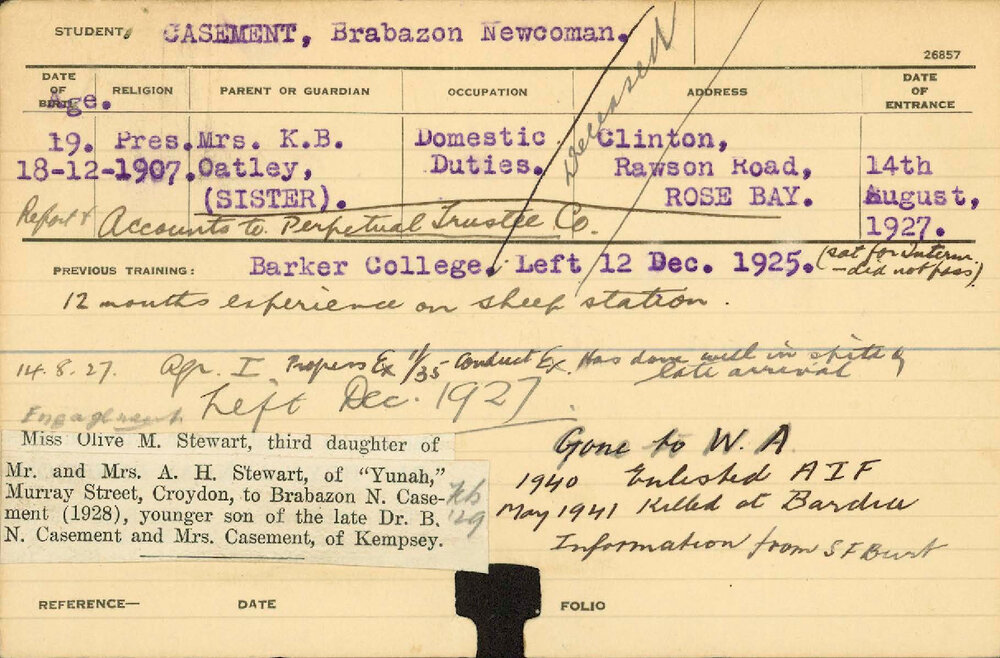 STUDENT, CASEMENT, Brabazon Newcoman.
26857
DATE OF BIRTH Age.
RELIGION
PARENT OR GUARDIAN
OCCUPATION
ADDRESS
DATE OF ENTRANCE
Deceased
19. Pres. Mrs. K.B. Domestic Clinton,
18-12-1907. Oatley, Duties. Rawson Road, 14th
(SISTER). ROSE BAY. August,
1927.
Report & Accounts to Perpetual Trustee Co.
PREVIOUS TRAINING: Barker College. Left 12 Dec. 1925. (sat for Interm.
- did not pass)
12 months experience on sheep station.
14.8.27. Agr. I Progress Ex 1/35 - Conduct Ex. Has done well in spite of
late arrival
Left Dec. 1927.
Engagement
Miss Olive M. Stewart, third daughter of
Mr. and Mrs. A. H. Stewart, of "Yunah,"
Murray Street, Croydon, to Brabazon N. Case-
ment (1928), younger son of the late Dr. B.
N. Casement and Mrs. Casement, of Kempsey.
Feb
'29
Gone to W. A
1940 Enlisted A I F
May 1941 Killed at Bardia
Information from S F Burt
REFERENCE—
DATE
FOLIO